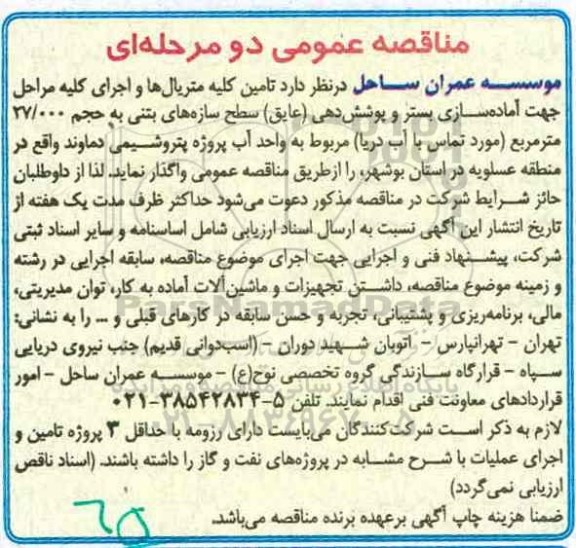 مناقصه عمومی دو مرحله‌ای
موسسه عمران ساحل درنظر دارد تامین کلیه متریال‌ها و اجرای کلیه مراحل
جهت آماده‌سازی بستر و پوشش‌دهی (عایق) سطح سازه‌های بتنی به حجم ۲۷/۰۰۰
مترمربع (مورد تماس با آب دریا) مربوط به واحد آب پروژه پتروشیمی دماوند واقع در
منطقه عسلویه در استان بوشهر، را ازطریق مناقصه عمومی واگذار نماید. لذا از داوطلبان
حائز شرایط شرکت در مناقصه مذکور دعوت می‌شود حداکثر ظرف مدت یک هفته از
تاریخ انتشار این آگهی نسبت به ارسال اسناد ارزیابی شامل اساسنامه و سایر اسناد ثبتی
شرکت، پیشنهاد فنی و اجرایی جهت اجرای موضوع مناقصه، سابقه اجرایی در رشته
و زمینه موضوع مناقصه، داشتن تجهیزات و ماشین‌آلات آماده به کار، توان مدیریتی،
مالی، برنامه‌ریزی و پشتیبانی، تجربه و حسن سابقه در کارهای قبلی و ... را به نشانی:
تهران - تهرانپارس - اتوبان شهید دوران - (اسب‌دوانی قدیم) جنب نیروی دریایی
سپاه - قرارگاه سازندگی گروه تخصصی نوح(ع) - موسسه عمران ساحل - امور
قراردادهای معاونت فنی اقدام نمایند. تلفن ۵-۳۸۵۴۲۸۳۴-۰۲۱
لازم به ذکر است شرکت‌کنندگان می‌بایست دارای رزومه با حداقل ۳ پروژه تامین و
اجرای عملیات با شرح مشابه در پروژه‌های نفت و گاز را داشته باشند. (اسناد ناقص
ارزیابی نمی‌گردد)
ضمنا هزینه چاپ آگهی برعهده برنده مناقصه می‌باشد.
ParsNamadData